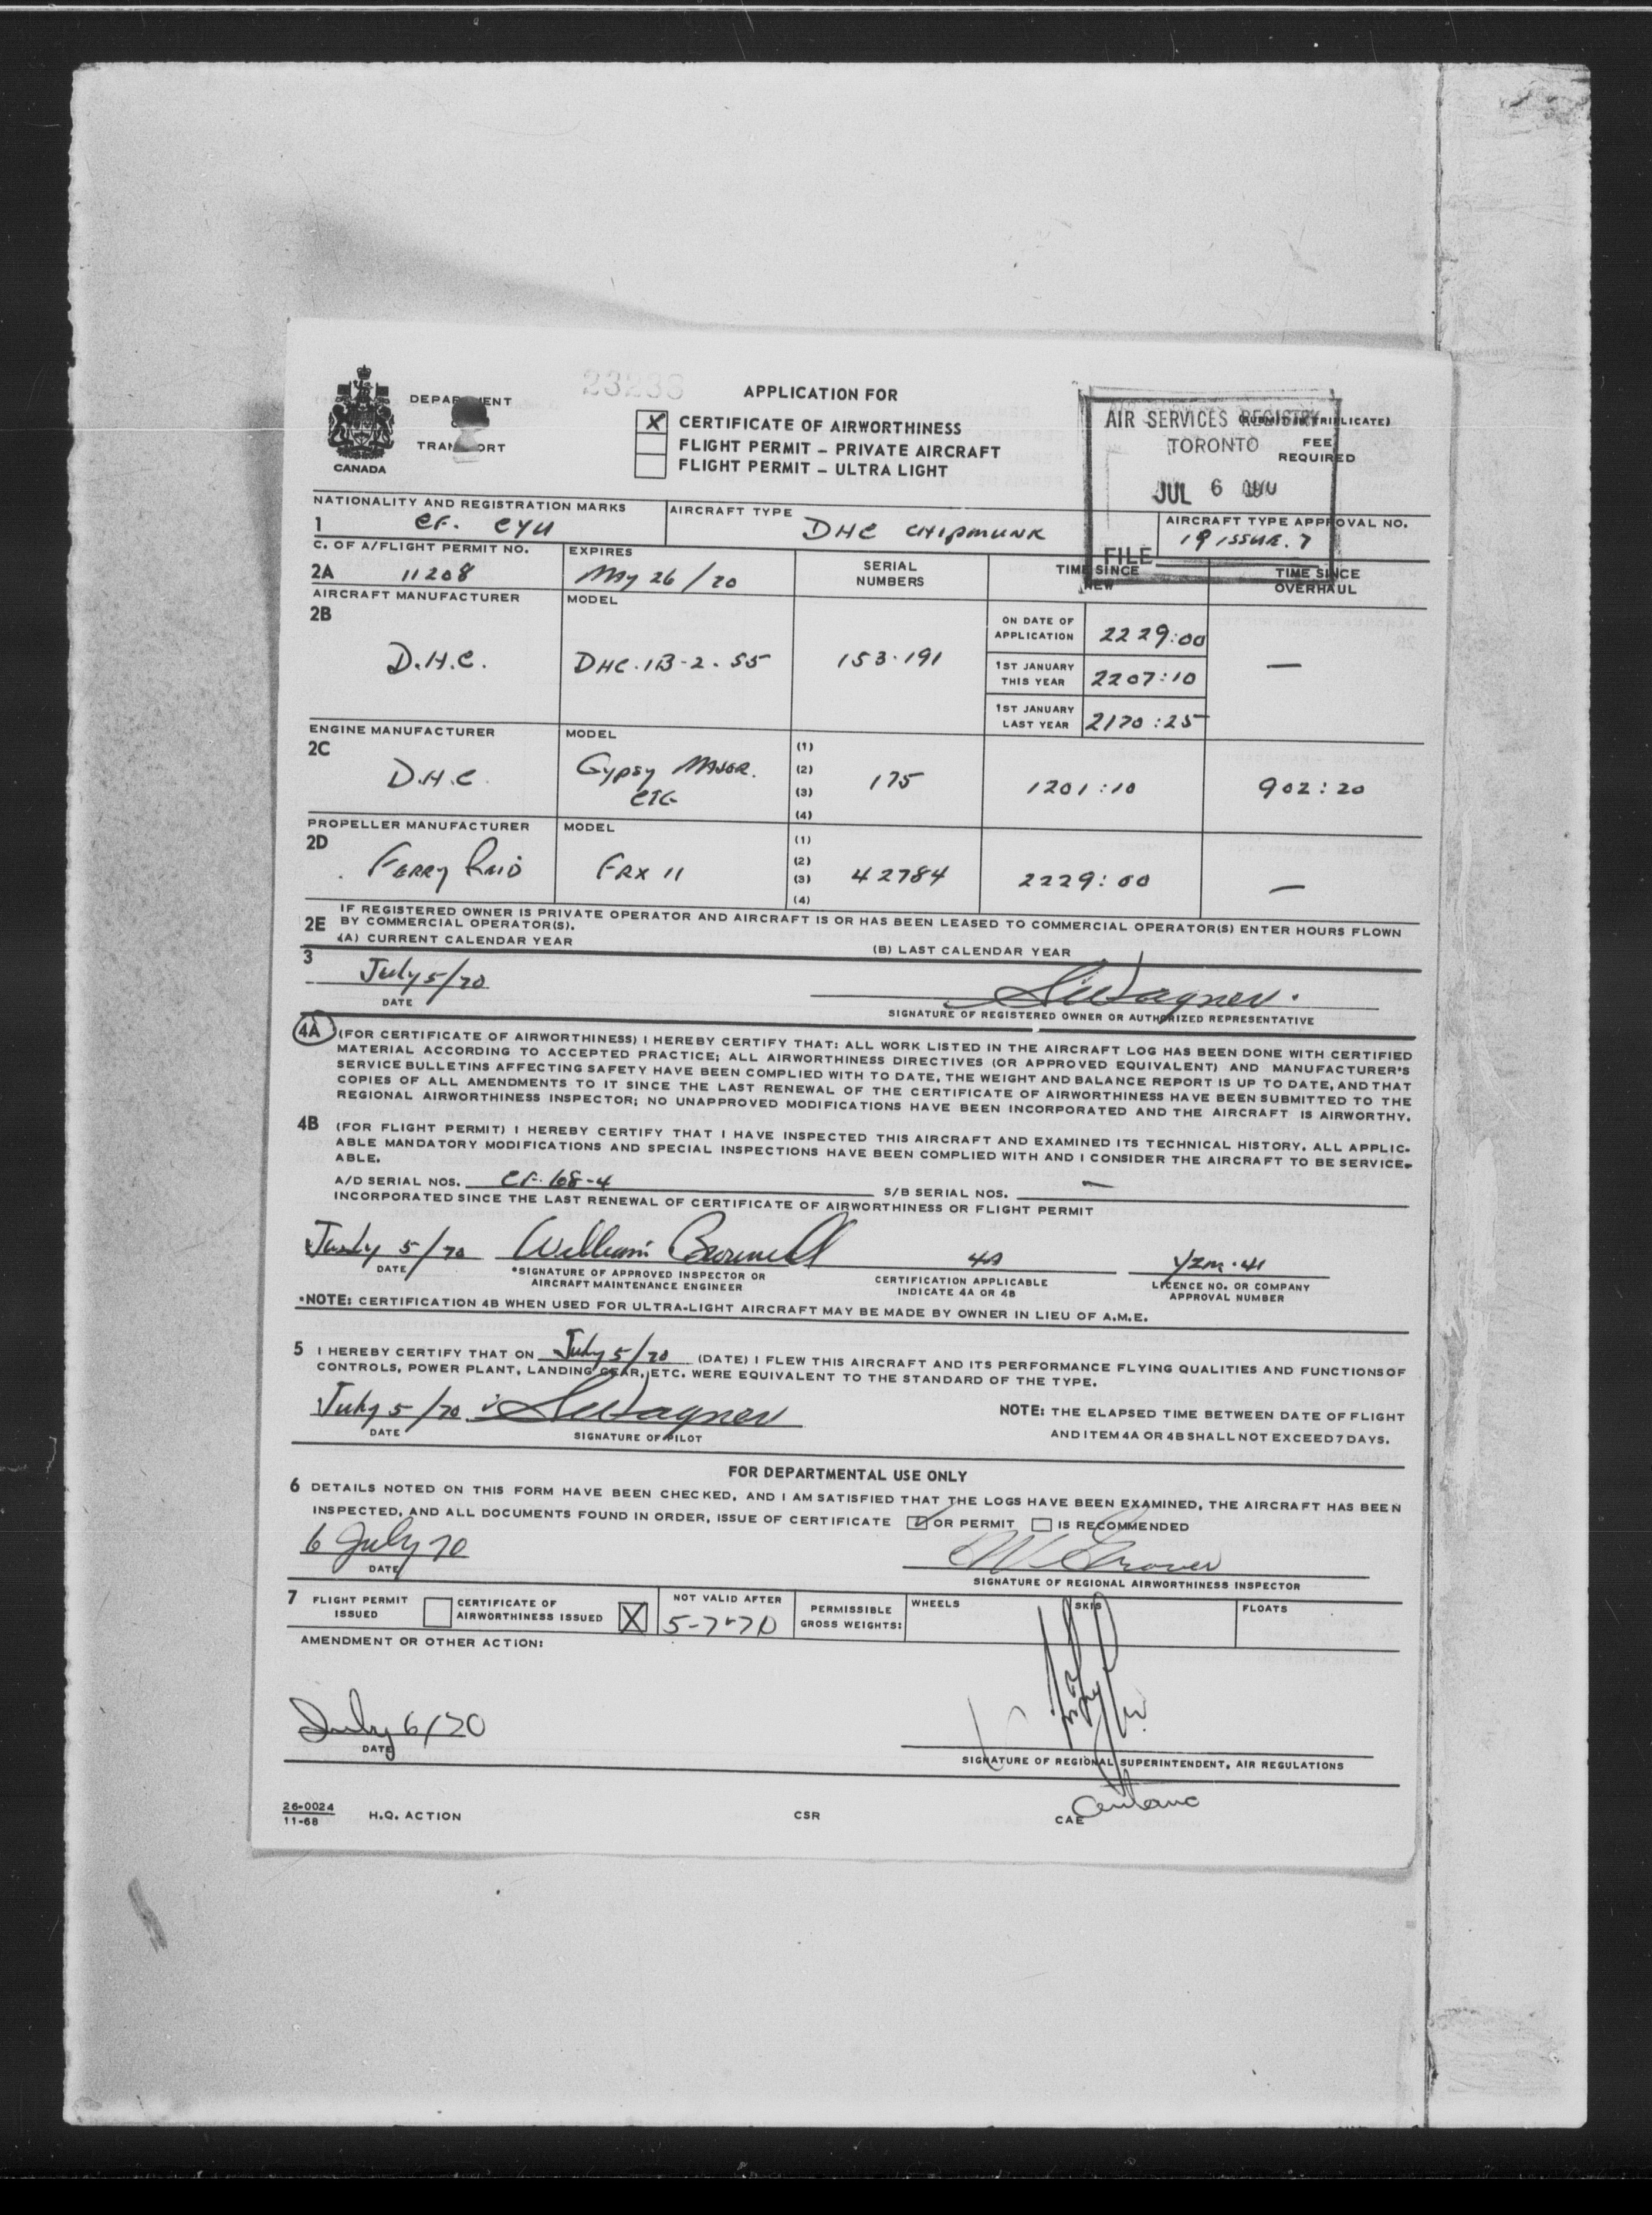 23233
DEPARTMENT
TRANSPORT
CANADA
APPLICATION FOR
X CERTIFICATE OF AIRWORTHINESS
FLIGHT PERMIT – PRIVATE AIRCRAFT
FLIGHT PERMIT – ULTRA LIGHT
AIR SERVICES REGISTRY
TORONTO
FEE
REQUIRED
JUL 6
FILE
NATIONALITY AND REGISTRATION MARKS
1 CF. CYU
AIRCRAFT TYPE DHC CHIPMUNK
AIRCRAFT TYPE APPROVAL NO.
19 ISSUE. 7
C. OF A/FLIGHT PERMIT NO.
2A 11208
EXPIRES
May 26/70
SERIAL
NUMBERS
TIME SINCE
NEW
TIME SINCE
OVERHAUL
AIRCRAFT MANUFACTURER
2B
D.H.C.
MODEL
DHC.1B-2-S5
153.191
ON DATE OF
APPLICATION 2229:00
1ST JANUARY
THIS YEAR 2207:10
1ST JANUARY
LAST YEAR 2170:25
—
ENGINE MANUFACTURER
2C
D.H.C.
MODEL
GYPSY MAJOR.
(1)
(2)
(3)
(4)
175
1201:10
902:20
PROPELLER MANUFACTURER
2D
MODEL
FRX 11
(1)
(2)
(3)
(4)
42784
2229:00
—
2E IF REGISTERED OWNER IS PRIVATE OPERATOR AND AIRCRAFT IS OR HAS BEEN LEASED TO COMMERCIAL OPERATOR(S) ENTER HOURS FLOWN
BY COMMERCIAL OPERATOR(S).
(A) CURRENT CALENDAR YEAR
(B) LAST CALENDAR YEAR
3
July 5/70
DATE
SIGNATURE OF REGISTERED OWNER OR AUTHORIZED REPRESENTATIVE
4A (FOR CERTIFICATE OF AIRWORTHINESS) I HEREBY CERTIFY THAT: ALL WORK LISTED IN THE AIRCRAFT LOG HAS BEEN DONE WITH CERTIFIED
MATERIAL ACCORDING TO ACCEPTED PRACTICE; ALL AIRWORTHINESS DIRECTIVES (OR APPROVED EQUIVALENT) AND MANUFACTURER'S
SERVICE BULLETINS AFFECTING SAFETY HAVE BEEN COMPLIED WITH TO DATE, THE WEIGHT AND BALANCE REPORT IS UP TO DATE, AND THAT
COPIES OF ALL AMENDMENTS TO IT SINCE THE LAST RENEWAL OF THE CERTIFICATE OF AIRWORTHINESS HAVE BEEN SUBMITTED TO THE
REGIONAL AIRWORTHINESS INSPECTOR; NO UNAPPROVED MODIFICATIONS HAVE BEEN INCORPORATED AND THE AIRCRAFT IS AIRWORTHY.
4B (FOR FLIGHT PERMIT) I HEREBY CERTIFY THAT I HAVE INSPECTED THIS AIRCRAFT AND EXAMINED ITS TECHNICAL HISTORY. ALL APPLIC-
ABLE MANDATORY MODIFICATIONS AND SPECIAL INSPECTIONS HAVE BEEN COMPLIED WITH AND I CONSIDER THE AIRCRAFT TO BE SERVICE-
ABLE.
A/D SERIAL NOS. CF-68-4 S/B SERIAL NOS. —
INCORPORATED SINCE THE LAST RENEWAL OF CERTIFICATE OF AIRWORTHINESS OR FLIGHT PERMIT
July 5/70 William 4A YZM.41
DATE
*SIGNATURE OF APPROVED INSPECTOR OR
AIRCRAFT MAINTENANCE ENGINEER
CERTIFICATION APPLICABLE
INDICATE 4A OR 4B
LICENCE NO. OR COMPANY
APPROVAL NUMBER
*NOTE: CERTIFICATION 4B WHEN USED FOR ULTRA-LIGHT AIRCRAFT MAY BE MADE BY OWNER IN LIEU OF A.M.E.
5 I HEREBY CERTIFY THAT ON July 5/70 (DATE) I FLEW THIS AIRCRAFT AND ITS PERFORMANCE FLYING QUALITIES AND FUNCTIONS OF
CONTROLS, POWER PLANT, LANDING GEAR, ETC. WERE EQUIVALENT TO THE STANDARD OF THE TYPE.
July 5/70
DATE
SIGNATURE OF PILOT
NOTE: THE ELAPSED TIME BETWEEN DATE OF FLIGHT
AND ITEM 4A OR 4B SHALL NOT EXCEED 7 DAYS.
FOR DEPARTMENTAL USE ONLY
6 DETAILS NOTED ON THIS FORM HAVE BEEN CHECKED, AND I AM SATISFIED THAT THE LOGS HAVE BEEN EXAMINED, THE AIRCRAFT HAS BEEN
INSPECTED, AND ALL DOCUMENTS FOUND IN ORDER, ISSUE OF CERTIFICATE OR PERMIT IS RECOMMENDED
6 July 70
DATE
SIGNATURE OF REGIONAL AIRWORTHINESS INSPECTOR
7 FLIGHT PERMIT
ISSUED
CERTIFICATE OF
AIRWORTHINESS ISSUED X
NOT VALID AFTER
5-7-70
PERMISSIBLE
GROSS WEIGHTS:
WHEELS
SKIS
FLOATS
AMENDMENT OR OTHER ACTION:
July 6/70
DATE
SIGNATURE OF REGIONAL SUPERINTENDENT, AIR REGULATIONS
26-0024
11-68
H.Q. ACTION
CSR
CAE